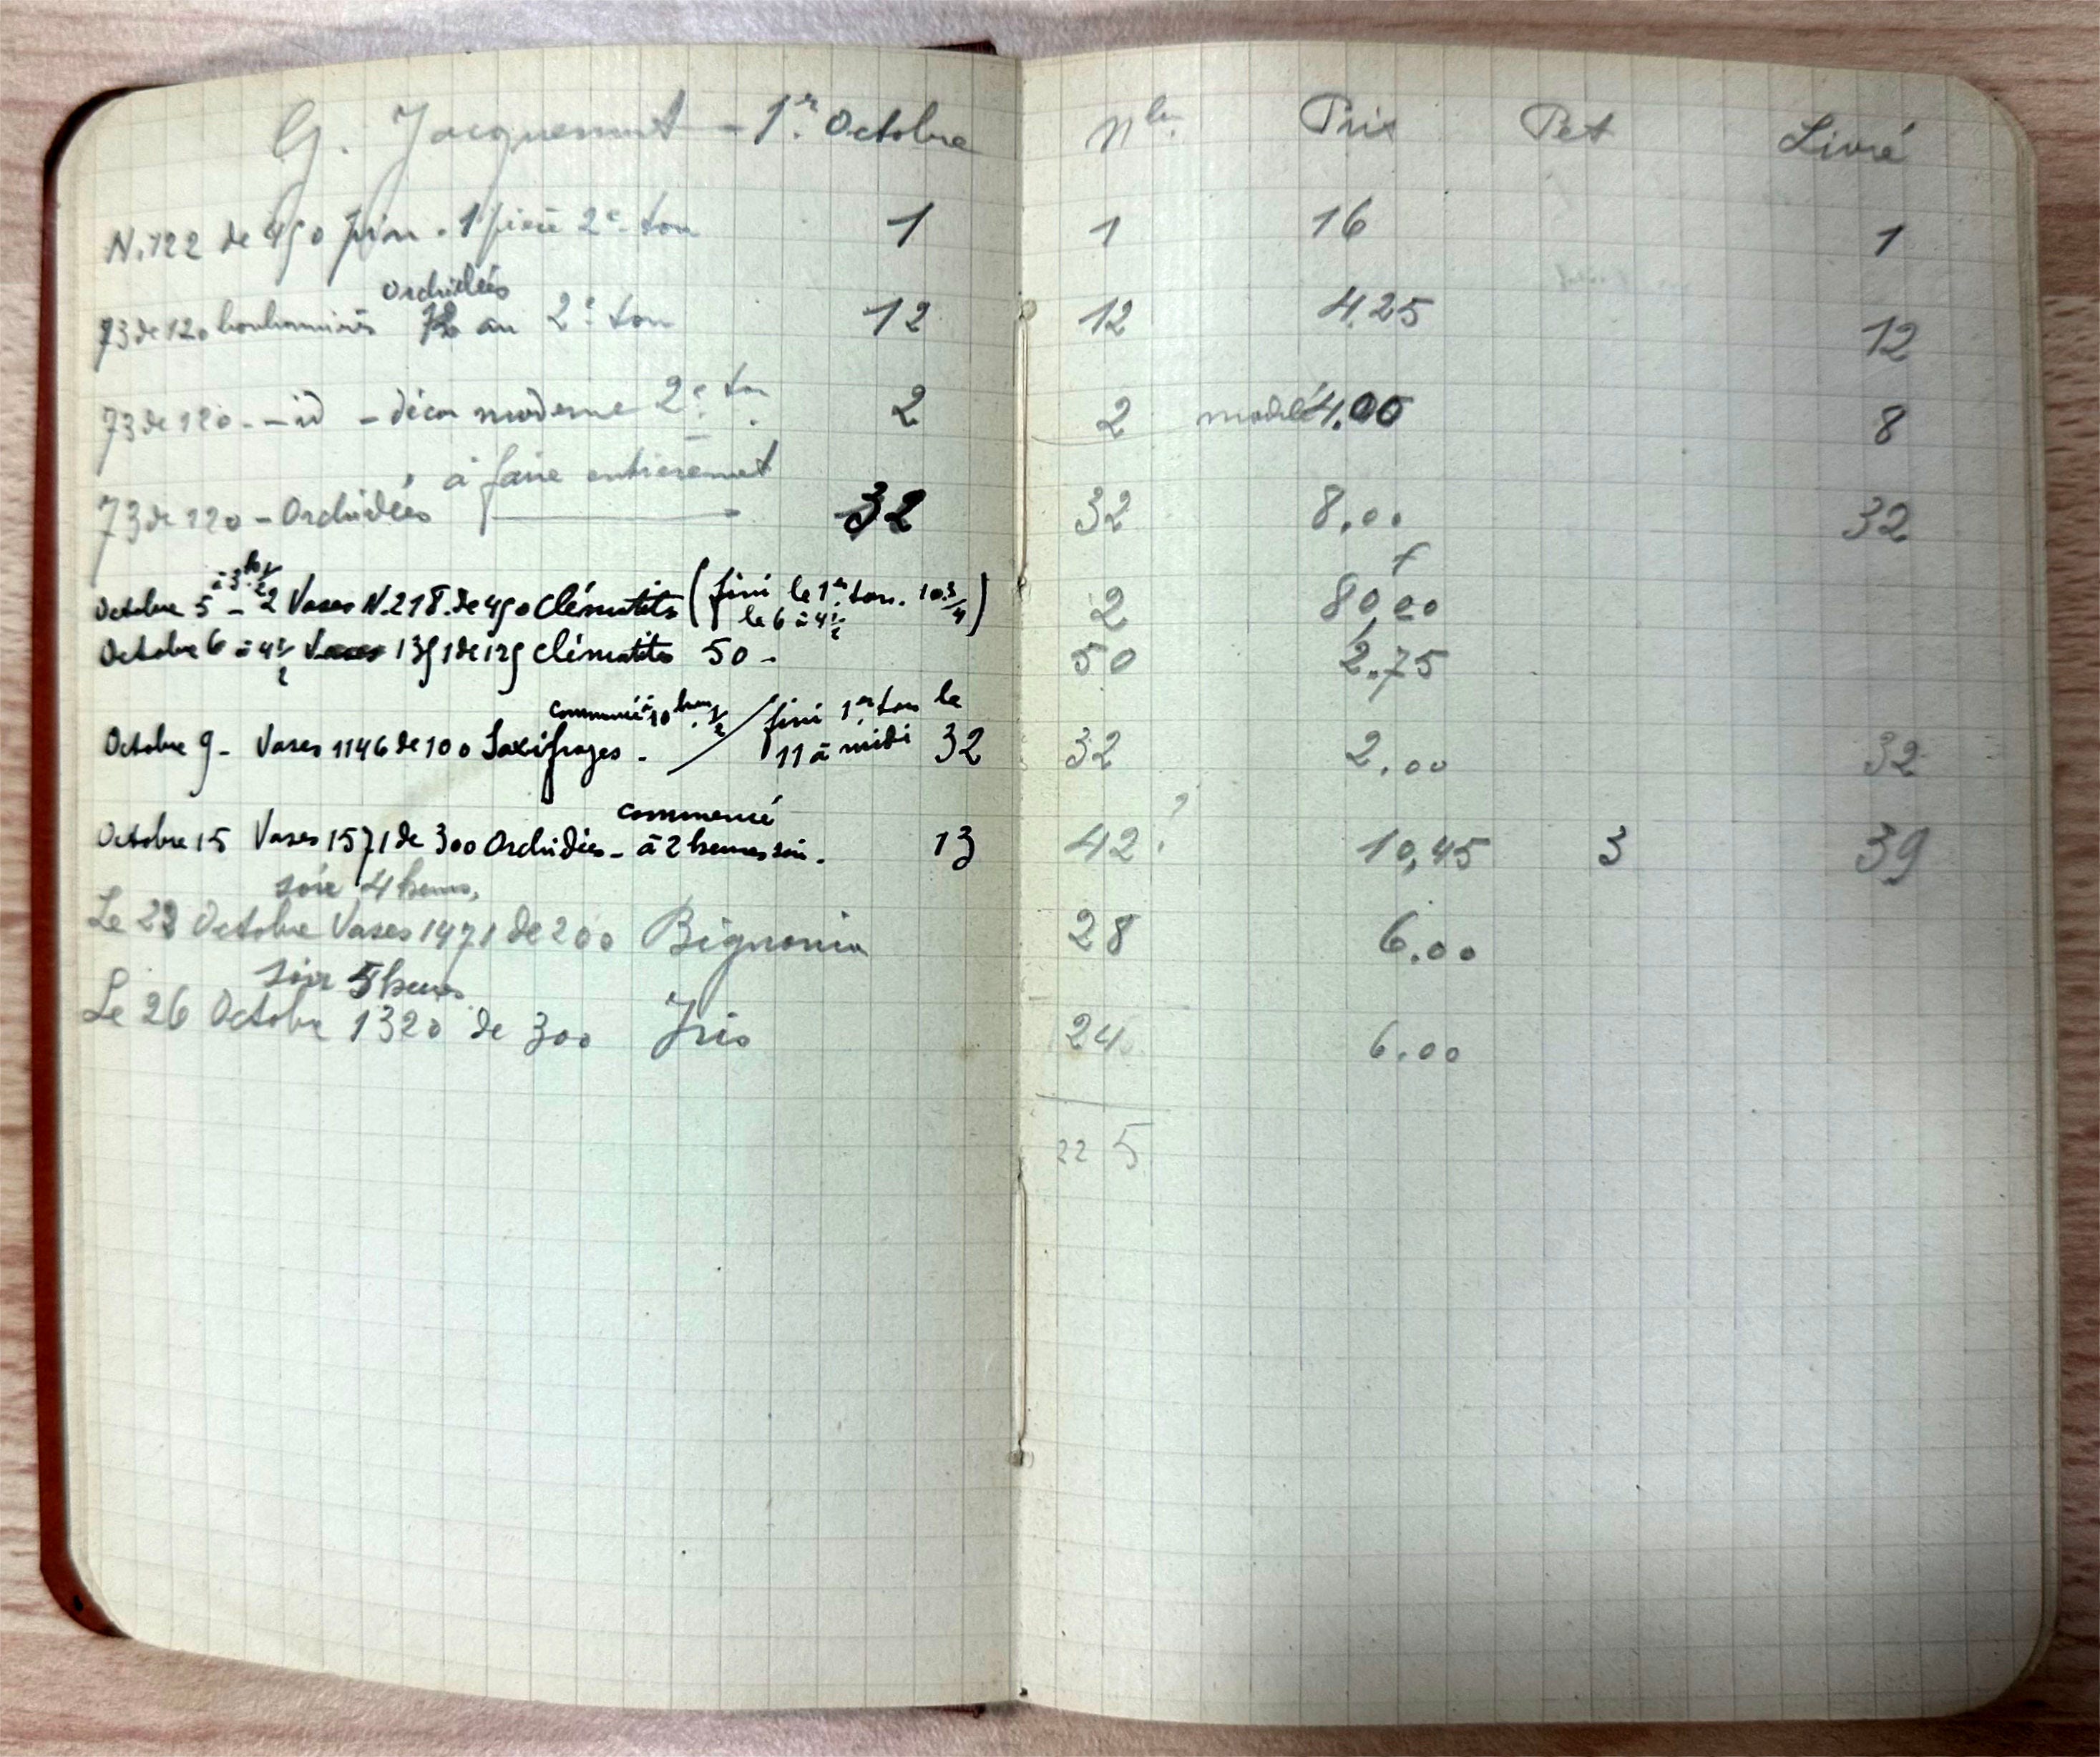 G. Jacquemut - 1er Octobre
N.122 de 450 pin. 1 pièce 2e ton 1
orchidées
73 de 120 bonbonnières au 2e ton 12
73 de 120 - id - décor moderne 2e ton 2
à faire entièrement
73 de 120 - Orchidées 32
à 3 h 1/2
Octobre 5 - 2 Vases N.218 de 450 Clématites (fini le 1er ton. 10 3/4
le 6 à 4 1/2)
Octobre 6 à 4 1/2 1351 de 125 Clématites 50 -
commencé à 10 heures 1/2 / fini 1er ton le
Octobre 9 - Vases 1146 de 100 Saxifrages - 11 à midi 32
commencé
Octobre 15 Vases 1571 de 300 Orchidées - à 2 heures soir - 13
soir 4 heures,
Le 22 Octobre Vases 1471 de 200 Bignonia
soir 5 heures
Le 26 Octobre 1320 de 300 Iris
Nbre Prix Pet Livré
1 16 1
12 4.25 12
2 modèle 4.00 8
32 8.00 32
f
2 80,00
50 2.75
32 2.00 32
42 ? 10,45 3 39
28 6.00
24 6.00
225